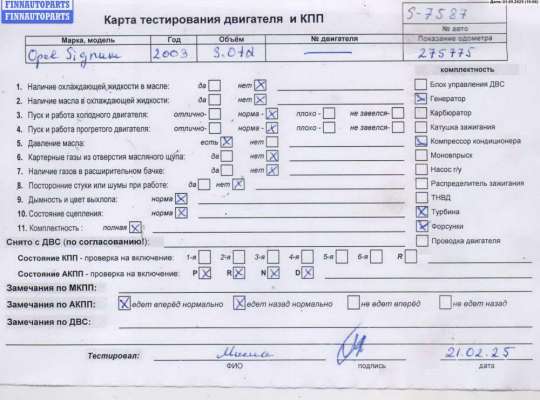 FINNAUTOPARTS
FINNAUTOPARTS
Карта тестирования двигателя и КПП
S-7587
№ авто
Марка, модель Год Объём № двигателя Показание одометра
Opel Signum 2003 3.0td 275775
комплектность
1. Наличие охлаждающей жидкости в масле: да нет Блок управления ДВС
2. Наличие масла в охлаждающей жидкости: да нет Генератор
3. Пуск и работа холодного двигателя: отлично- норма - плохо - не завелся- Карбюратор
4. Пуск и работа прогретого двигателя: отлично- норма - плохо - не завелся- Катушка зажигания
5. Давление масла: есть нет Компрессор кондиционера
6. Картерные газы из отверстия масляного щупа: да нет Моновпрыск
7. Наличие газов в расширительном бачке: да нет Насос г/у
8. Посторонние стуки или шумы при работе: да нет Распределитель зажигания
9. Дымность и цвет выхлопа: норма ТНВД
10. Состояние сцепления: норма Турбина
11. Комплектность: полная Форсунки
Проводка двигателя
Снято с ДВС (по согласованию!):
Состояние КПП - проверка на включение: 1-я 2-я 3-я 4-я 5-я 6-я R
Состояние АКПП - проверка на включение: P R N D
Замечания по МКПП:
Замечания по АКПП: едет вперёд нормально едет назад нормально не едет вперёд не едет назад
Замечания по ДВС:
Тестировал: 21.02.25
ФИО подпись дата